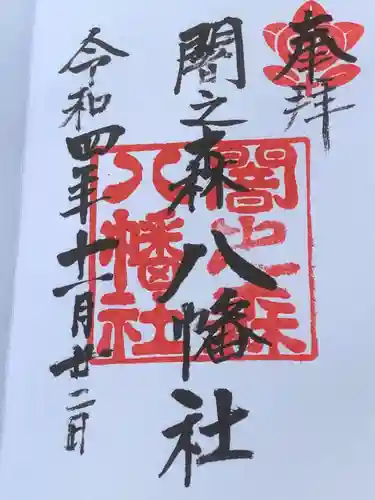 奉拝
闇之森八幡社
令和四年十一月廿二日
闇之森
八幡社